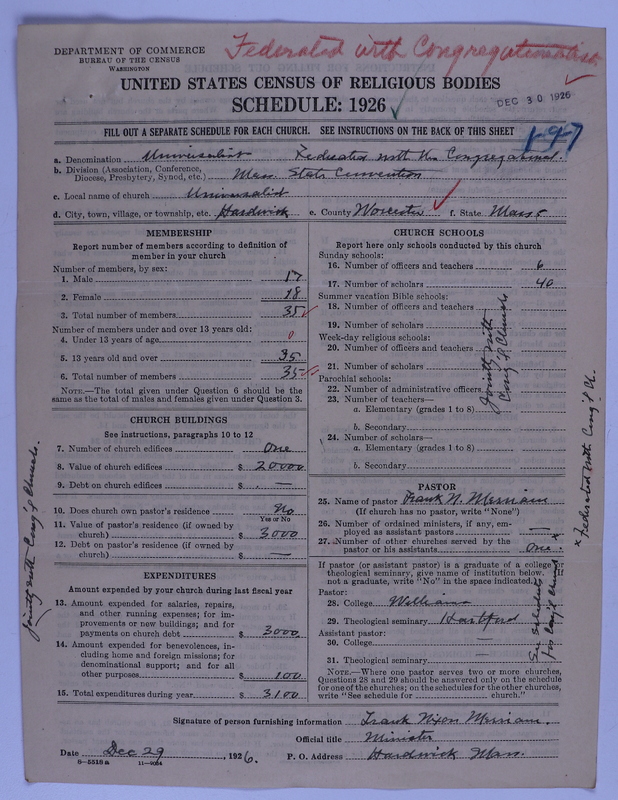 DEPARTMENT OF COMMERCE
BUREAU OF THE CENSUS
WASHINGTON
Federated with Congregationalist
UNITED STATES CENSUS OF RELIGIOUS BODIES
SCHEDULE: 1926
DEC 30 1926
FILL OUT A SEPARATE SCHEDULE FOR EACH CHURCH. SEE INSTRUCTIONS ON THE BACK OF THIS SHEET
1-97
a. Denomination Universalist Federated with the Congregational.
b. Division (Association, Conference, Diocese, Presbytery, Synod, etc.) Mass. State Convention
c. Local name of church Universalist
d. City, town, village, or township, etc. Hardwick e. County Worcester f. State Mass.
MEMBERSHIP
Report number of members according to definition of member in your church
Number of members, by sex:
1. Male 17
2. Female 18
3. Total number of members 35
Number of members under and over 13 years old:
4. Under 13 years of age 0
5. 13 years old and over 35
6. Total number of members 35
NOTE.—The total given under Question 6 should be the same as the total of males and females given under Question 3.
CHURCH BUILDINGS
See instructions, paragraphs 10 to 12
7. Number of church edifices One
8. Value of church edifices $ 20000
9. Debt on church edifices $ —
10. Does church own pastor's residence No
Yes or No
11. Value of pastor's residence (if owned by church) $ 3000
12. Debt on pastor's residence (if owned by church) $ —
Jointly with Cong'l Church.
EXPENDITURES
Amount expended by your church during last fiscal year
13. Amount expended for salaries, repairs, and other running expenses; for improvements or new buildings; and for payments on church debt $ 3000
14. Amount expended for benevolences, including home and foreign missions; for denominational support; and for all other purposes $ 100
15. Total expenditures during year $ 3100
CHURCH SCHOOLS
Report here only schools conducted by this church
Sunday schools:
16. Number of officers and teachers 6
17. Number of scholars 40
Summer vacation Bible schools:
18. Number of officers and teachers
19. Number of scholars
Week-day religious schools:
20. Number of officers and teachers
21. Number of scholars
Parochial schools:
22. Number of administrative officers
23. Number of teachers—
a. Elementary (grades 1 to 8)
b. Secondary
24. Number of scholars—
a. Elementary (grades 1 to 8)
b. Secondary
Jointly with Cong'l Church
PASTOR
25. Name of pastor Frank N. Merriam
(If church has no pastor, write "None")
26. Number of ordained ministers, if any, employed as assistant pastors —
27. Number of other churches served by the pastor or his assistants One. x
x Federated with Cong'l Ch.
If pastor (or assistant pastor) is a graduate of a college or theological seminary, give name of institution below. If not a graduate, write "No" in the space indicated.
Pastor:
28. College Williams
29. Theological seminary Hartford
Assistant pastor:
30. College —
31. Theological seminary —
See Schedule for Cong'l Church
NOTE.—Where one pastor serves two or more churches, Questions 28 and 29 should be answered only on the schedule for one of the churches; on the schedules for the other churches, write "See schedule for church."
Signature of person furnishing information Frank Nixon Merriam.
Official title Minister
Date Dec 29, 1926. P. O. Address Hardwick Mass.
8—5518a 11—2064